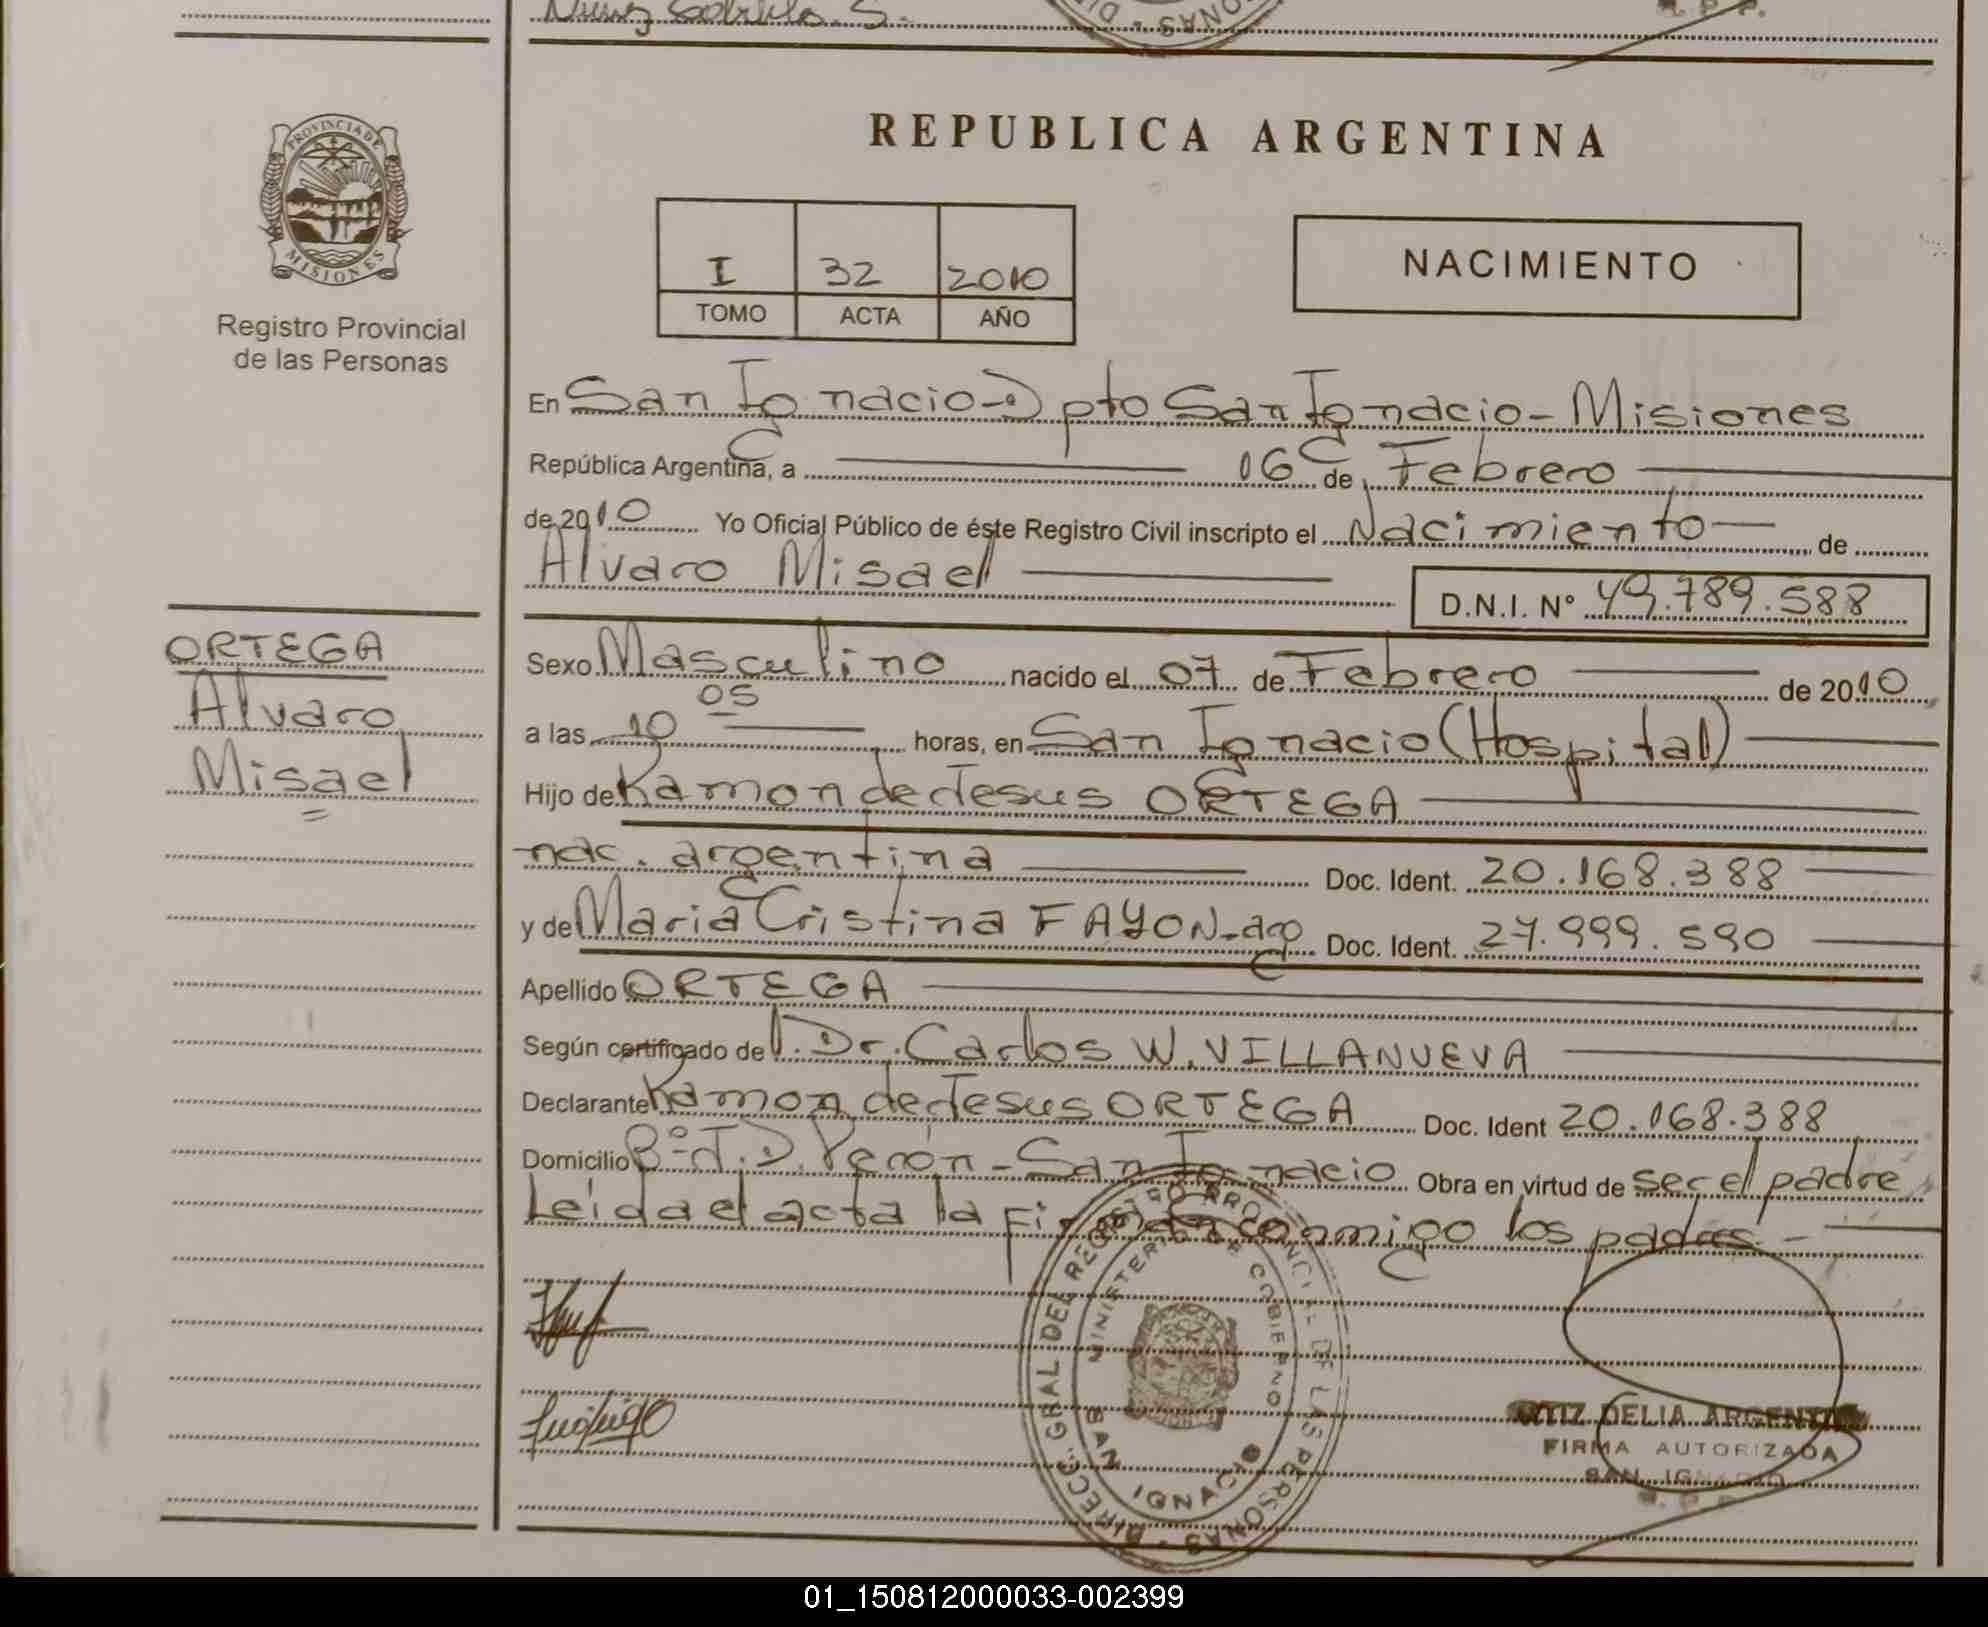 PROVINCIA DE
MISIONES
Registro Provincial
de las Personas
ORTEGA
Alvaro
Misael
REPUBLICA ARGENTINA
I 32 2010
TOMO ACTA AÑO
NACIMIENTO
En San Ignacio - Dpto San Ignacio - Misiones
República Argentina, a 16 de Febrero
de 2010 Yo Oficial Público de éste Registro Civil inscripto el Nacimiento de
Alvaro Misael D.N.I. Nº 49.789.588
Sexo Masculino nacido el 07 de Febrero de 2010
a las 10 05 horas, en San Ignacio (Hospital)
Hijo de Ramon de Jesus ORTEGA
nac. argentina Doc. Ident. 20.168.388
y de Maria Cristina FAYON - arg Doc. Ident. 27.999.590
Apellido ORTEGA
Según certificado de Dr. Carlos W. VILLANUEVA
Declarante Ramon de Jesus ORTEGA Doc. Ident 20.168.388
Domicilio Bº J. D. Perón - San Ignacio Obra en virtud de ser el padre
Leída el acta la firman conmigo los padres -
DIREC. GRAL DEL REGISTRO PROVINCIAL DE LAS PERSONAS
MINISTERIO DE GOBIERNO
SAN IGNACIO
DELIA ARGENTINA
FIRMA AUTORIZADA
SAN IGNACIO
01_150812000033-002399